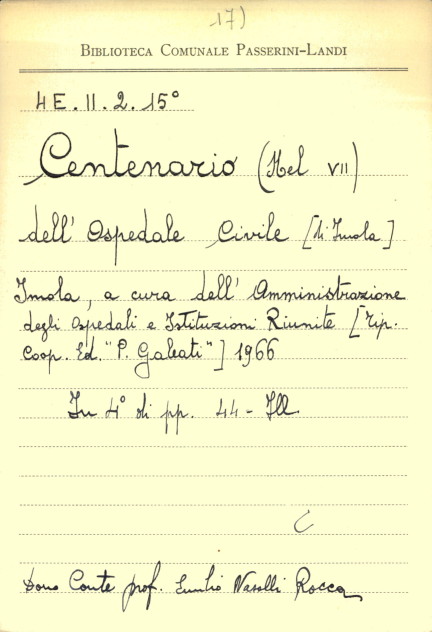 17)
BIBLIOTECA COMUNALE PASSERINI-LANDI
4E.II.2.15°
Centenario (Nel VII)
dell' Ospedale Civile [di Imola]
Imola, a cura dell' Amministrazione
degli Ospedali e Istituzioni Riunite [Tip.
Coop. Ed. "P. Galeati"] 1966
In 4° di pp. 44 - Ill.
Dono Conte prof. Emilio Nasalli Rocca